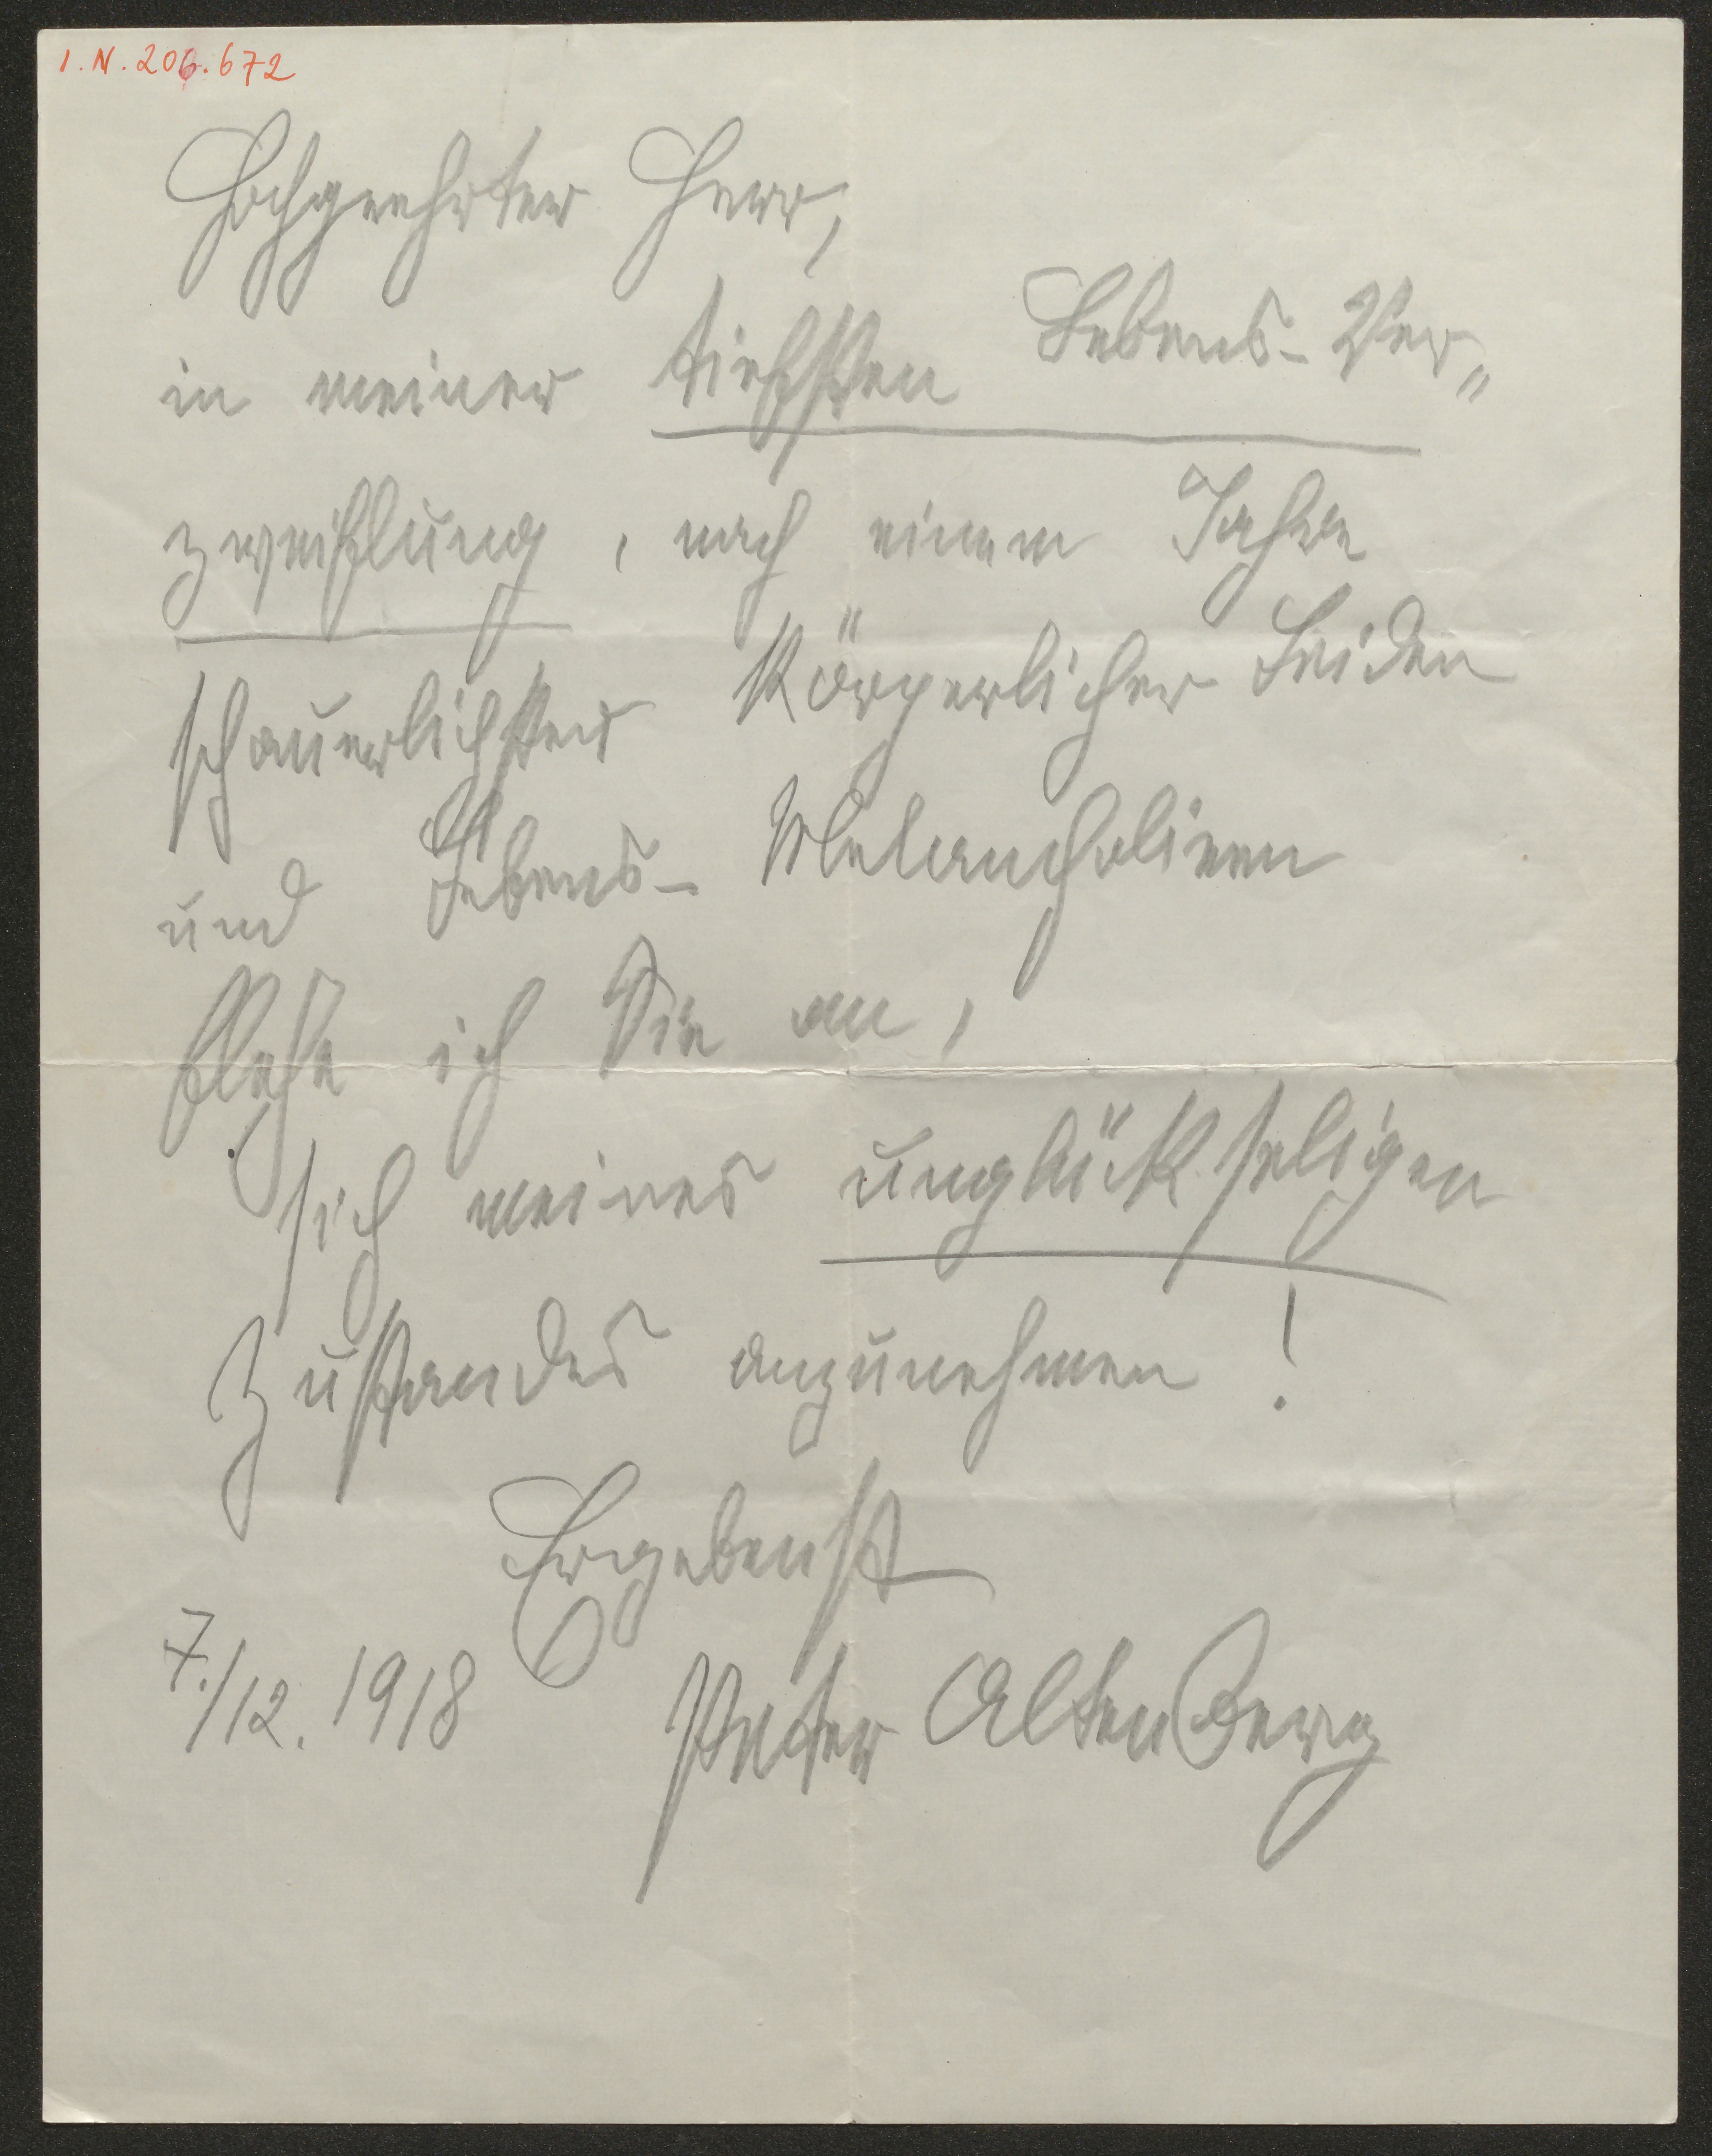 I.N. 206.672
Hochgeehrter Herr,
in meiner tiefsten Lebens-Ver„
zweiflung, nach einem Jahre
schauerlichster körperlicher Leiden
und Lebens-Melancholieen
flehe ich Sie an,
sich meines unglückseligen
Zustandes anzunehmen!
Ergebenst
7./12. 1918 Peter Altenberg